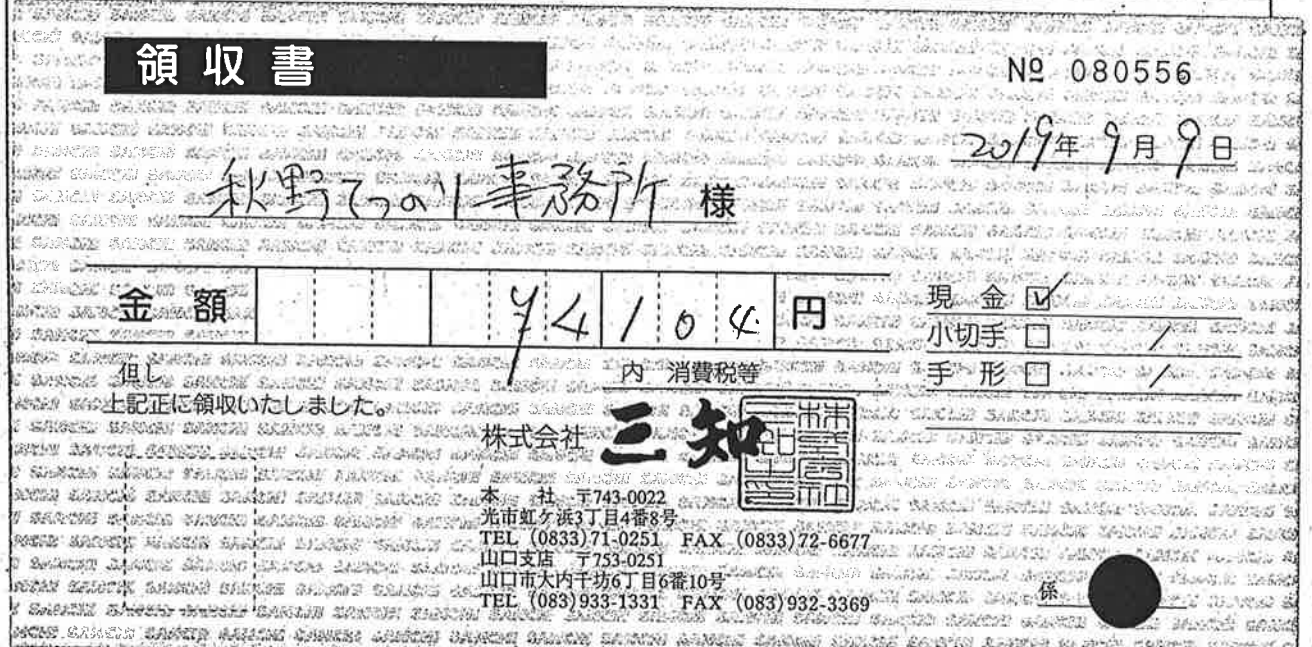 領収書
№ 080556
2019年 9月 9日
秋野てつのり事務所 様
金額 ¥4104 円
現金 ☑
小切手 ☐ /
手形 ☐ /
但し
内 消費税等
上記正に領収いたしました。
株式会社 三知
本社 〒743-0022
光市虹ケ浜3丁目4番8号
TEL (0833)71-0251 FAX (0833)72-6677
山口支店 〒753-0251
山口市大内千坊6丁目6番10号
TEL (083)933-1331 FAX (083)932-3369
係